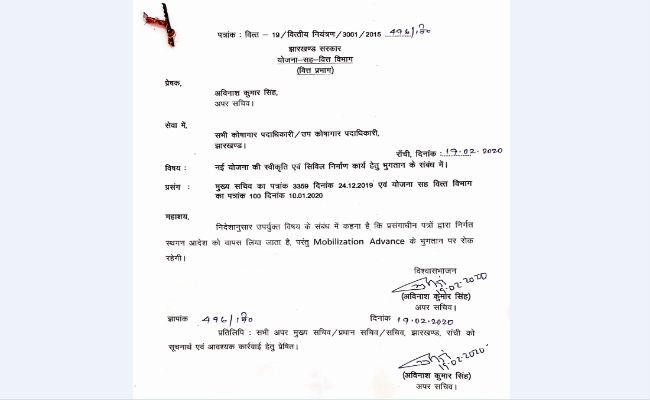 पत्रांक : वित्त – 19/वित्तीय नियंत्रण/3001/2015 496/वि०
झारखण्ड सरकार
योजना–सह–वित्त विभाग
(वित्त प्रभाग)
प्रेषक,
अविनाश कुमार सिंह,
अपर सचिव।
सेवा में,
सभी कोषागार पदाधिकारी/उप कोषागार पदाधिकारी,
झारखण्ड।
राँची, दिनांक : 19.02.2020
विषय : नई योजना की स्वीकृति एवं सिविल निर्माण कार्य हेतु भुगतान के संबंध में।
प्रसंग : मुख्य सचिव का पत्रांक 3359 दिनांक 24.12.2019 एवं योजना सह वित्त विभाग
का पत्रांक 100 दिनांक 10.01.2020
महाशय,
निदेशानुसार उपर्युक्त विषय के संबंध में कहना है कि प्रसंगाधीन पत्रों द्वारा निर्गत
स्थगन आदेश को वापस लिया जाता है, परंतु Mobilization Advance के भुगतान पर रोक
रहेगी।
विश्वासभाजन
19.02.2020
(अविनाश कुमार सिंह)
अपर सचिव।
ज्ञापांक 496/वि० दिनांक 19.02.2020
प्रतिलिपि : सभी अपर मुख्य सचिव/प्रधान सचिव/सचिव, झारखण्ड, राँची को
सूचनार्थ एवं आवश्यक कार्रवाई हेतु प्रेषित।
19.02.2020
(अविनाश कुमार सिंह)
अपर सचिव।